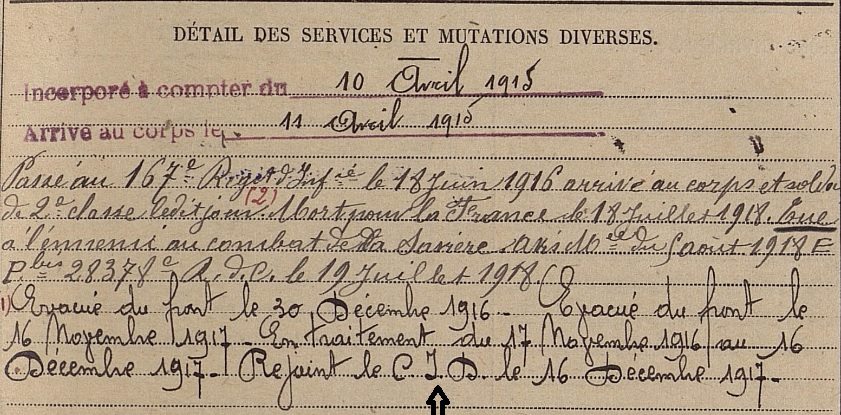 DÉTAIL DES SERVICES ET MUTATIONS DIVERSES.
Incorporé à compter du 10 Avril 1915
Arrivé au corps le 11 Avril 1915
Passé au 167e Régt d'Infie le 18 Juin 1916 arrivé au corps et soldat
(2)
de 2e classe ledit jour. Mort pour la France le 18 Juillet 1918. Tué
à l'ennemi au combat de la Savière. Avis Mel du 5 août 1918 E
P bis 28378 R.d.C. le 19 Juillet 1918
1) Evacué du front le 30 Décembre 1916 - (Evacué du front le
16 Novembre 1917 - En traitement du 17 Novembre 1916 au 16
Décembre 1917 - Rejoint le C I. D. le 16 Décembre 1917 -